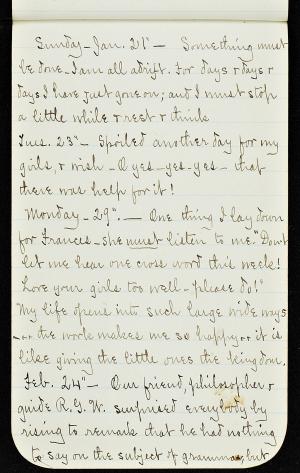 Sunday - Jan. 21st — Something must
be done - I am all adrift. For days & days &
days I have just gone on; and I must stop
a little while & rest & think
Tues. 23rd - Spoiled another day for my
girls, & wish - O yes - yes - yes - that
there was help for it!
Monday - 29th. — One thing I lay down
for Frances - she must listen to me. "Don't
let me hear one cross word this week!
Love your girls too well - please do!"
My life opens into such large wide ways
- the work makes me so happy it is
like giving the little ones the kingdom.
Feb. 24th - Our friend, philosopher &
guide R. G. W. surprised everybody by
rising to remark that he had nothing
to say on the subject of grammar, but